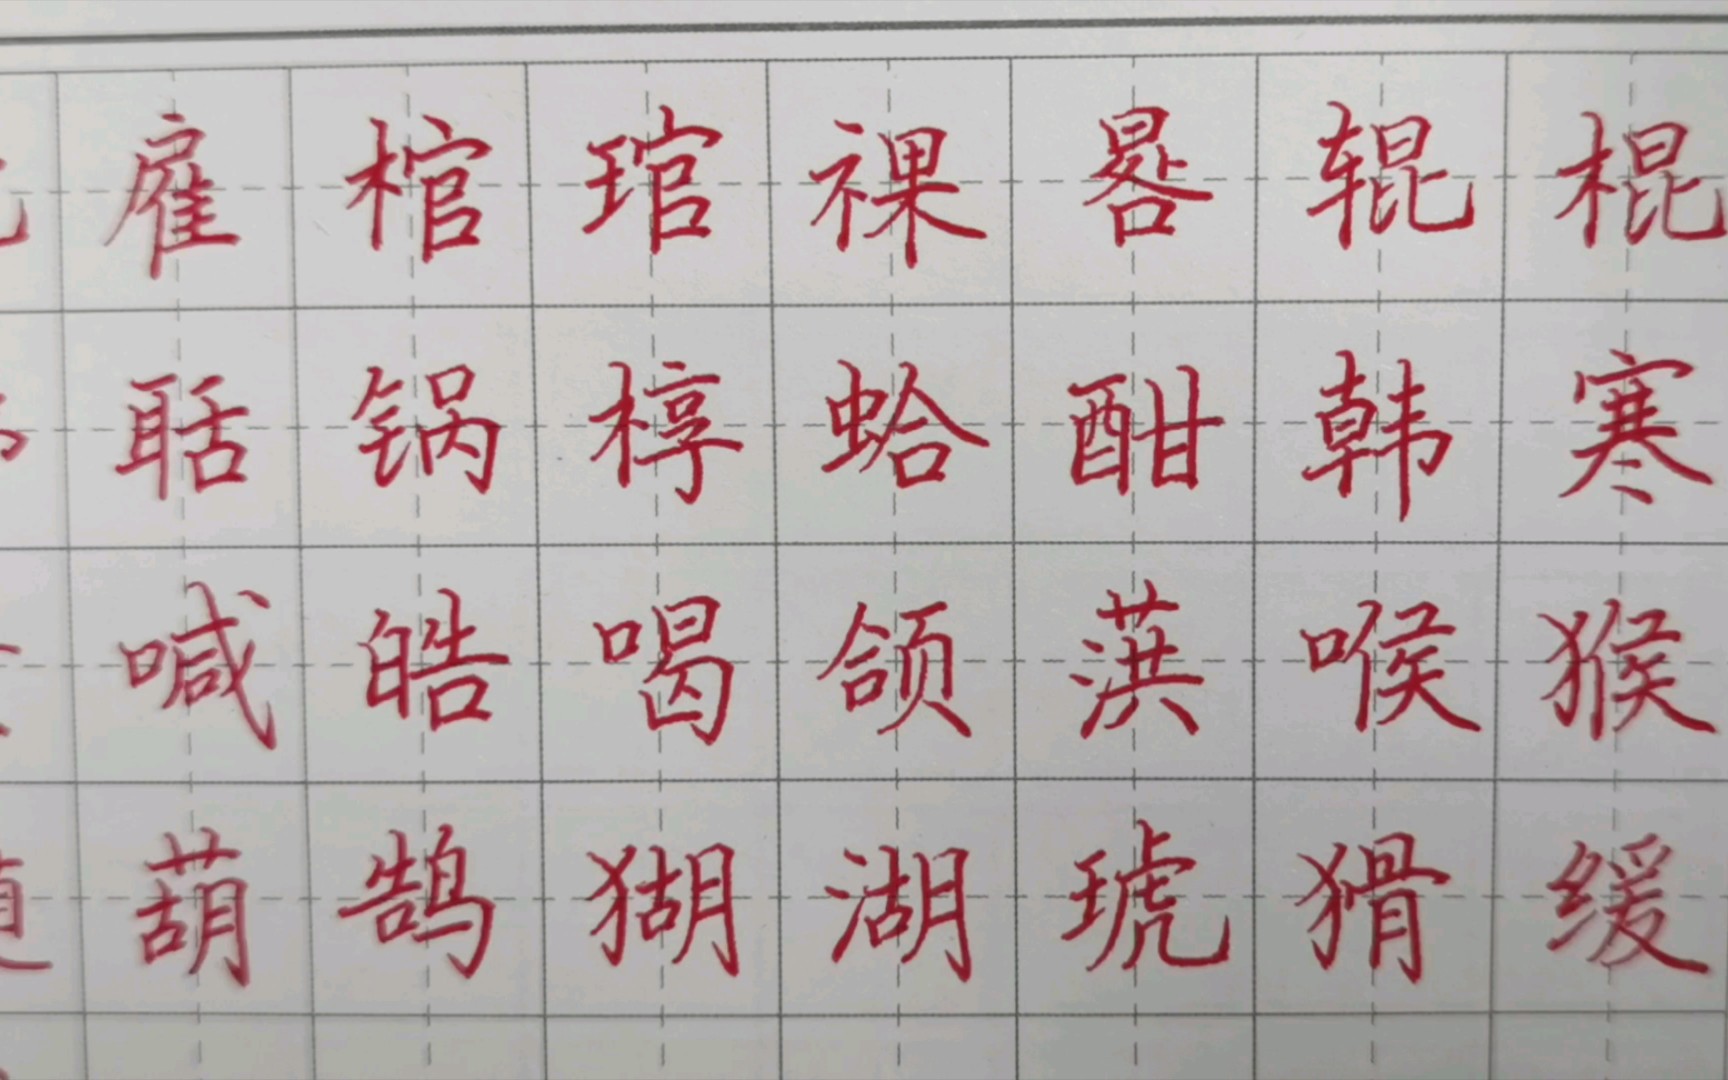 雇棺琯祼晷辊棍
聒锅椁蛤酣韩寒
喊皓喝颌葓喉猴
葫鹄猢湖琥猾缓